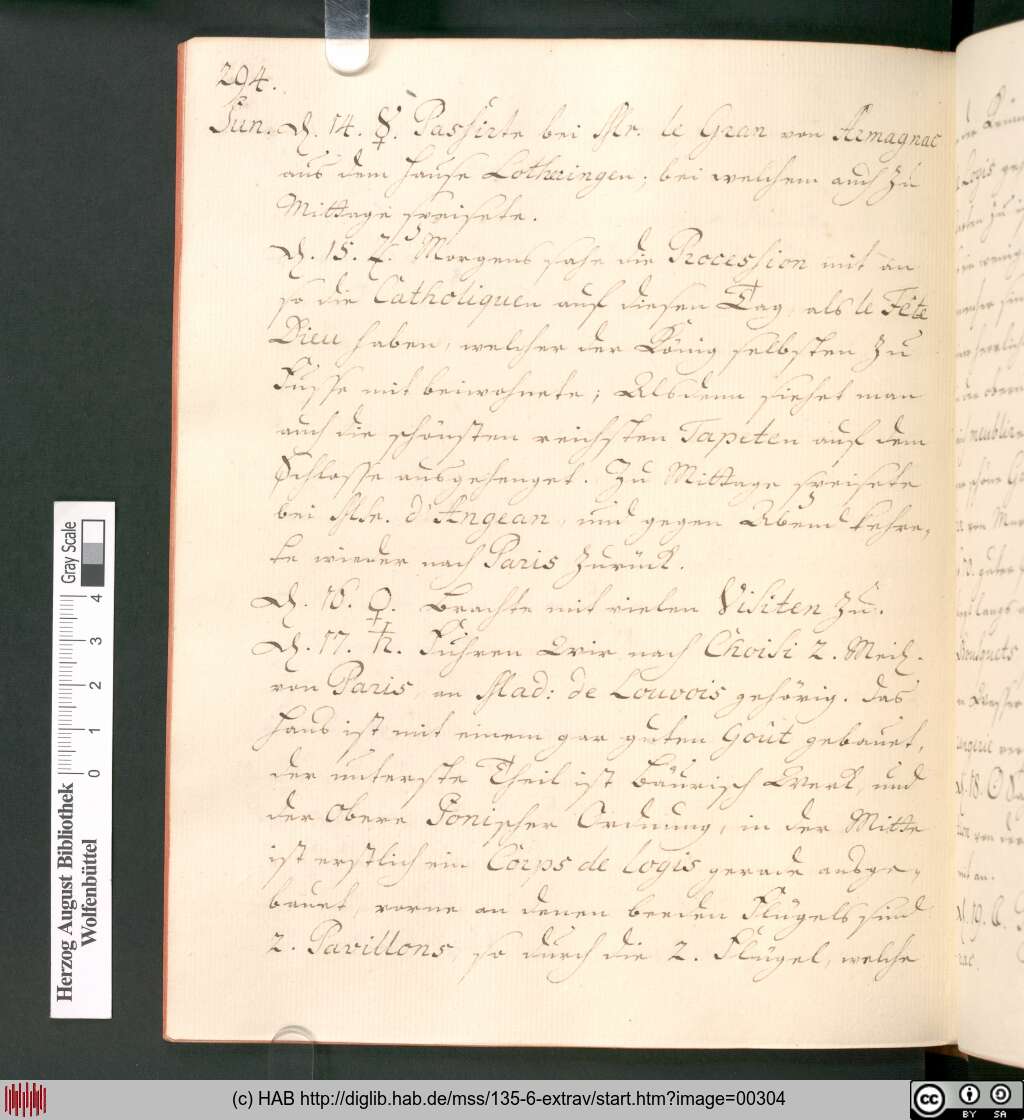 294.
Jun. d. 14. ☿. Passirte bei Mr. le Gran von Armagnac
aus dem Hause Lothringen; bei welchem auch zu
Mittage speisete.
d. 15. ♃. Morgens sahe die Procession mit an
so die Catholiquen auf diesen Tag, als le Fête
Dieu haben, welcher der König selbsten zu
Fusse mit beiwohnete; Alsdenn siehet man
auch die schönsten reichsten Tapeten auf dem
Schlosse ausgehenget. Zu Mittage speisete
bei Me. d'Angean, und gegen Abend kehre,
te wieder nach Paris zurück.
d. 16. ♀. Brachte mit vielen Visiten zu.
d. 17. ♄. Fuhren Wir nach Choisi 2. Meil.
von Paris, an Mad: de Louvois gehörig. das
Haus ist mit einem gar guten Goût gebauet,
der unterste Theil ist Bäurisch Werk, und
der Obere Jonischer Ordnung, in der Mitte
ist erstlich ein Corps de logis gerade ausge,
bauet, vorne an denen beeden Flügels sind
2. Pavillons, so durch die 2. Flügel, welche
Herzog August Bibliothek
Wolfenbüttel
Gray Scale
0 1 2 3 4
(c) HAB http://diglib.hab.de/mss/135-6-extrav/start.htm?image=00304
cc BY SA